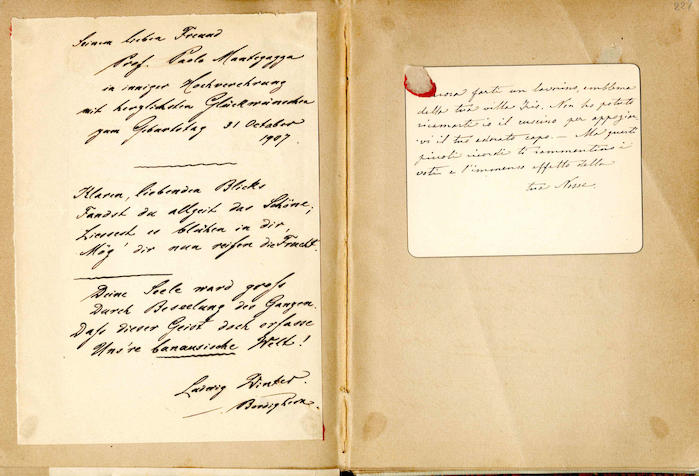 Seinem lieben Freund
Prof. Paolo Mantegazza
in inniger Hochverehrung
mit herzlichsten Glückwünschen
zum Geburtstag 31 October
1907.
Klaren, liebenden Blicks
Fandst du allzeit das Schöne;
Liessest es blühen in dir,
Mög' dir nun reifen die Frucht.
Deine Seele ward gross
Durch Beseelung des Ganzen.
Dass dieser Geist doch erfasse
Uns're banausische Welt!
Ludwig Winter.
Bordighera.
farti un lavorino, emblema
della tua villa Iris. Non ho potuto
ricamarti io il cuscino per appoggiar
vi il tuo adorato capo. — Ma questi
piccoli ricordi ti rammentino i
voti e l'immenso affetto della
tua